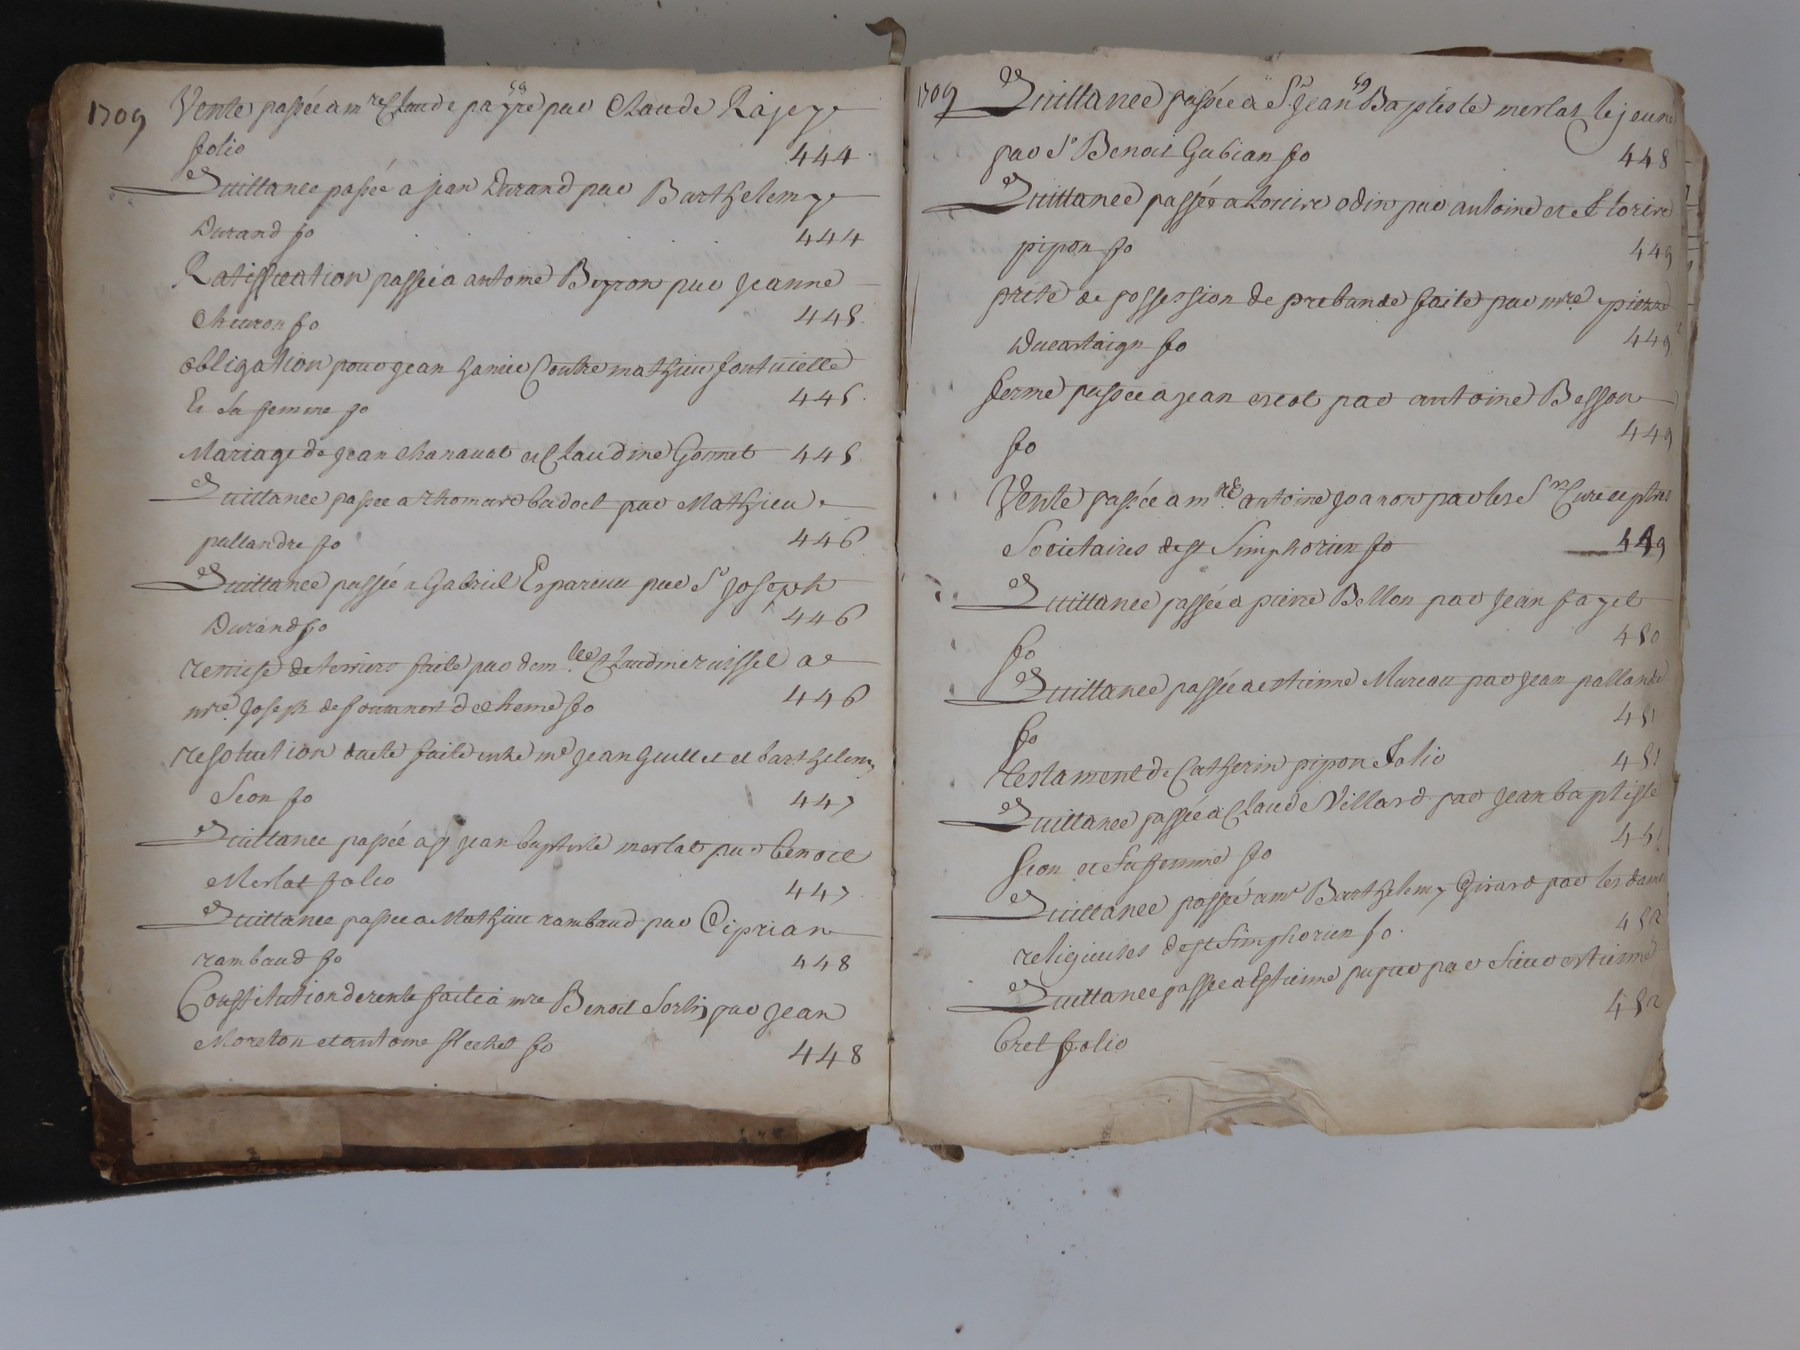 1709
Vente passée a mre Claude payre par Claude Rajeye
folio 444
Quittance passée a jean Durand par Barthelemye
Durand fo 444
Ratiffication passée a antoine Beyron par jeanne
Cheuron fo 445
obligation pour jean Contre mathieu fontuielle
Et sa femme fo 445
Mariage de jean Chanauat et Claudine Gonnet 445
Quittance passée a Badoel par Mathieu
pallandre fo 446
Quittance passée a Gabriel Espareuu par Sr joseph
Durand fo 446
remise de terriers faite par demlle Claudine ruissel a
mre joseph de fo 446
resolution dacte faite entre me jean Guillet et barthelemy
Seon fo 447
Quittance passée a Sr jean baptiste merlat par benoit
Merlat folio 447
Quittance passée a Mathieu rambaud par Ciprian
rambaud fo 448
Constitution de rente faite a mre Benoit Sorlin par jean
Moreton et antoine flechet fo 448
1709
Quittance passée a Sr jean Baptiste merlat le jeune
par Sr Benoit Gubian fo 448
Quittance passée a odin par antoine et florire
pipon fo 449
prise de possession de prebande faite par mre pierre
Ducartaign fo 449
ferme passée a jean escot par antoine Besson
fo 449
Vente passée a mre antoine joanon par les Srs Curé et ptres
Societaires de st Simphorien fo 449
Quittance passée a pierre Bellon par jean fayet
fo 450
Quittance passée a estienne Mureau par jean pallandre
fo 451
testament de Catherin pipon folio 451
Quittance passée a Claude Villard par jean baptiste
Seon et sa femme fo 451
Quittance passée a mr Barthelemy Girard par les dames
religieuses de st Simphorien fo 452
Quittance passée a Estienne par Sieur estienne
Bret folio 452